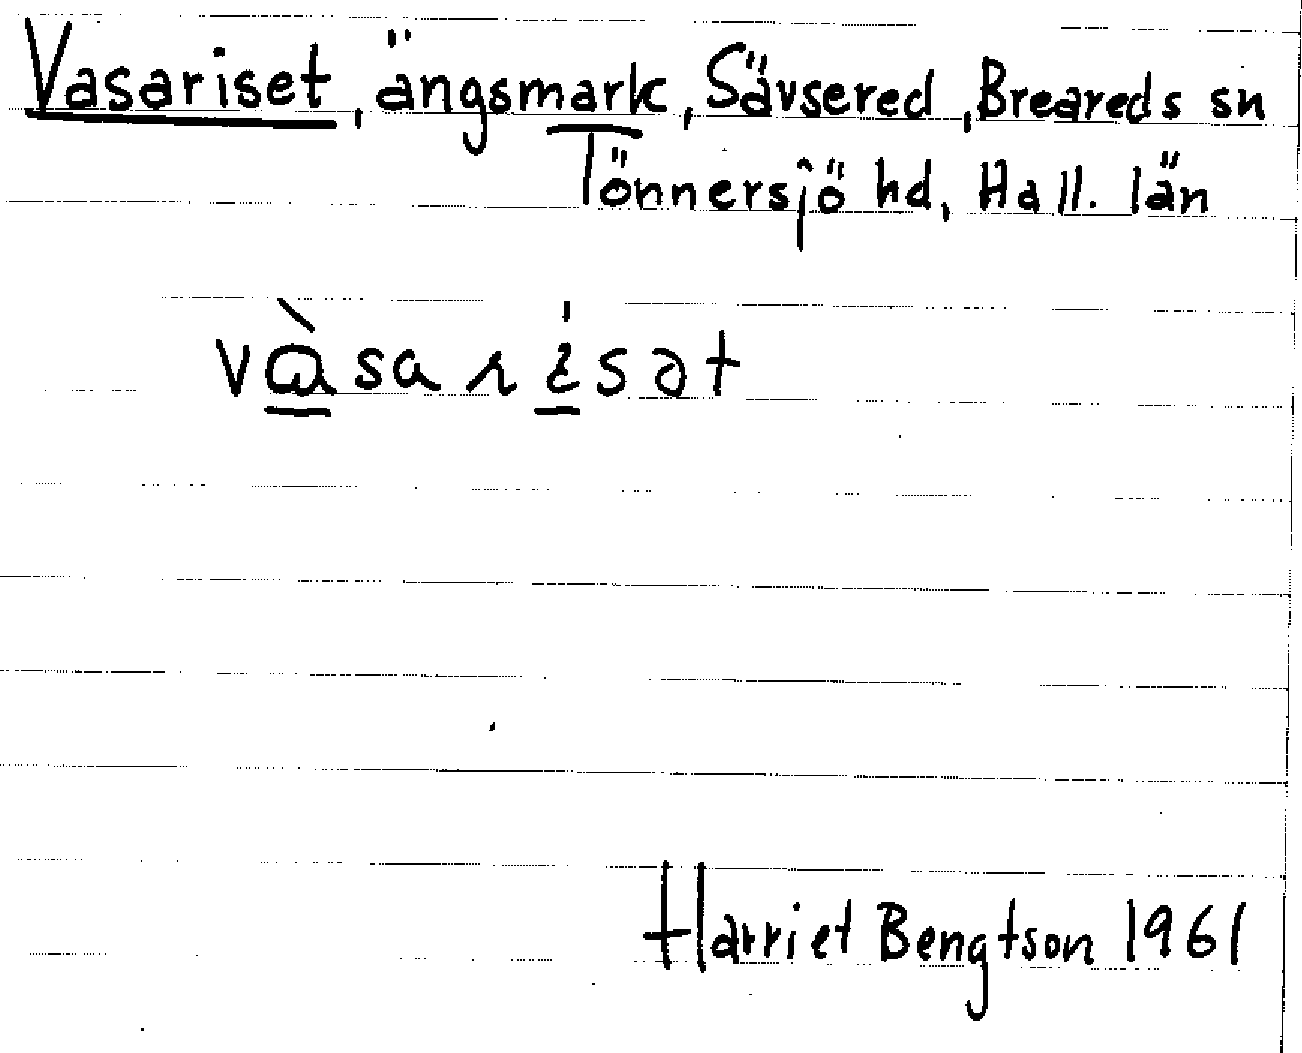 Vasariset, ängsmark, Sävsered, Breareds sn
Tönnersjö hd, Hall. län
vàsarisət
Harriet Bengtson 1961